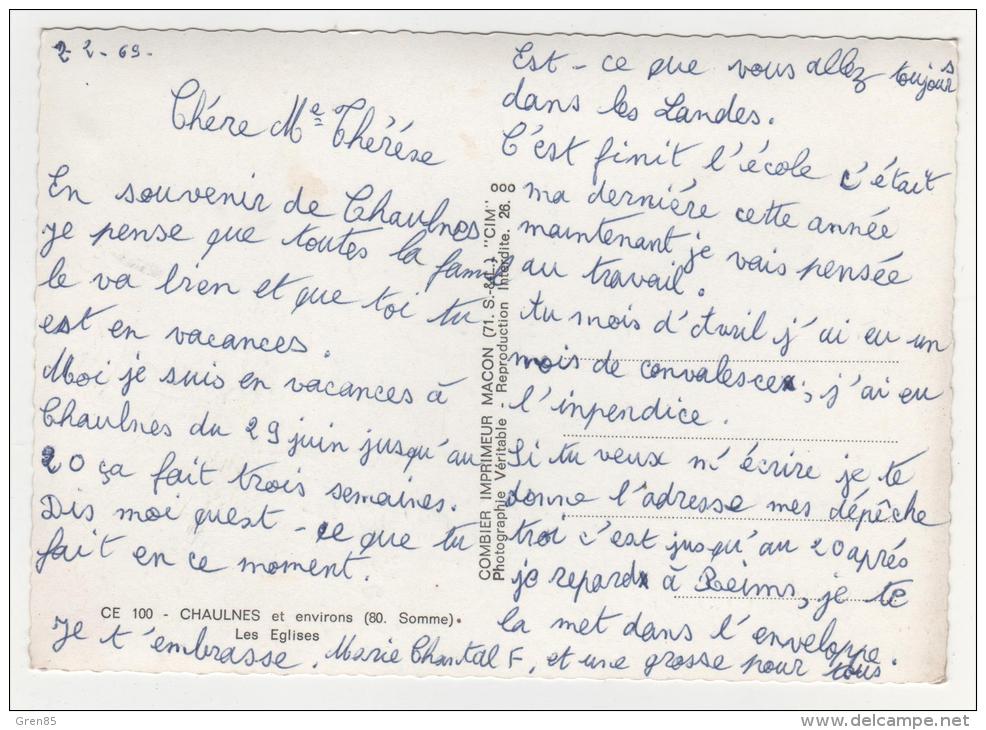 2-2-69-
Chére Me Thérése
En souvenir de Chaulnes
je pense que toutes la famil
le va bien et que toi tu
est en vacances.
Moi je suis en vacances à
Chaulnes du 29 juin jusqu'au
20 ça fait trois semaines.
Dis moi quest-ce que tu
fait en ce moment.
Je t'embrasse. Marie Chantal F, et une grosse pour tous
Est-ce que vous allez toujours
dans les Landes.
C'est finit l'école c'était
ma derniére cette année
maintenant je vais pensée
au travail.
Au mois d'Avril j'ai eu un
mois de convalesce; j'ai eu
l'inpendice.
Si tu veux m'écrire je te
donne l'adresse mes dépêche
troi c'est jusqu'au 20 aprés
je repard à Reims, je te
la met dans l'enveloppe.
COMBIER IMPRIMEUR MACON (71. S.-&-L.) "CIM"
Photographie Véritable - Reproduction Interdite. 26.
ooo
CE 100 - CHAULNES et environs (80. Somme).
Les Eglises
Gren85
delcampe.net